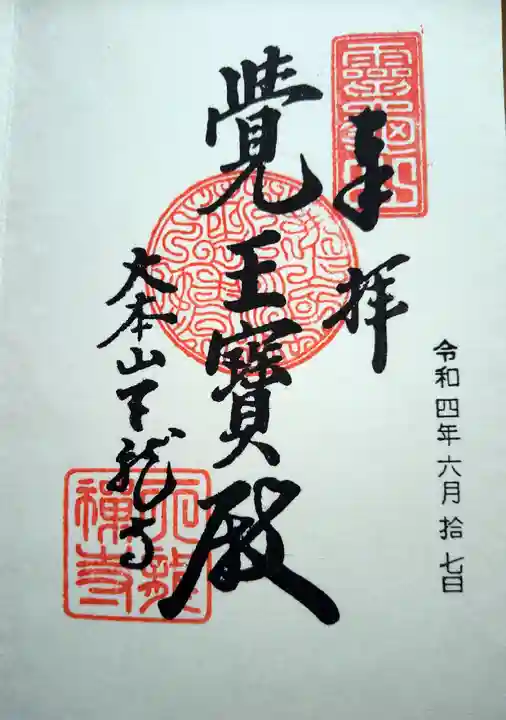 令和四年六月拾七日
奉拝
覺王寶殿
大本山天龍寺
靈龜山
天龍禪寺